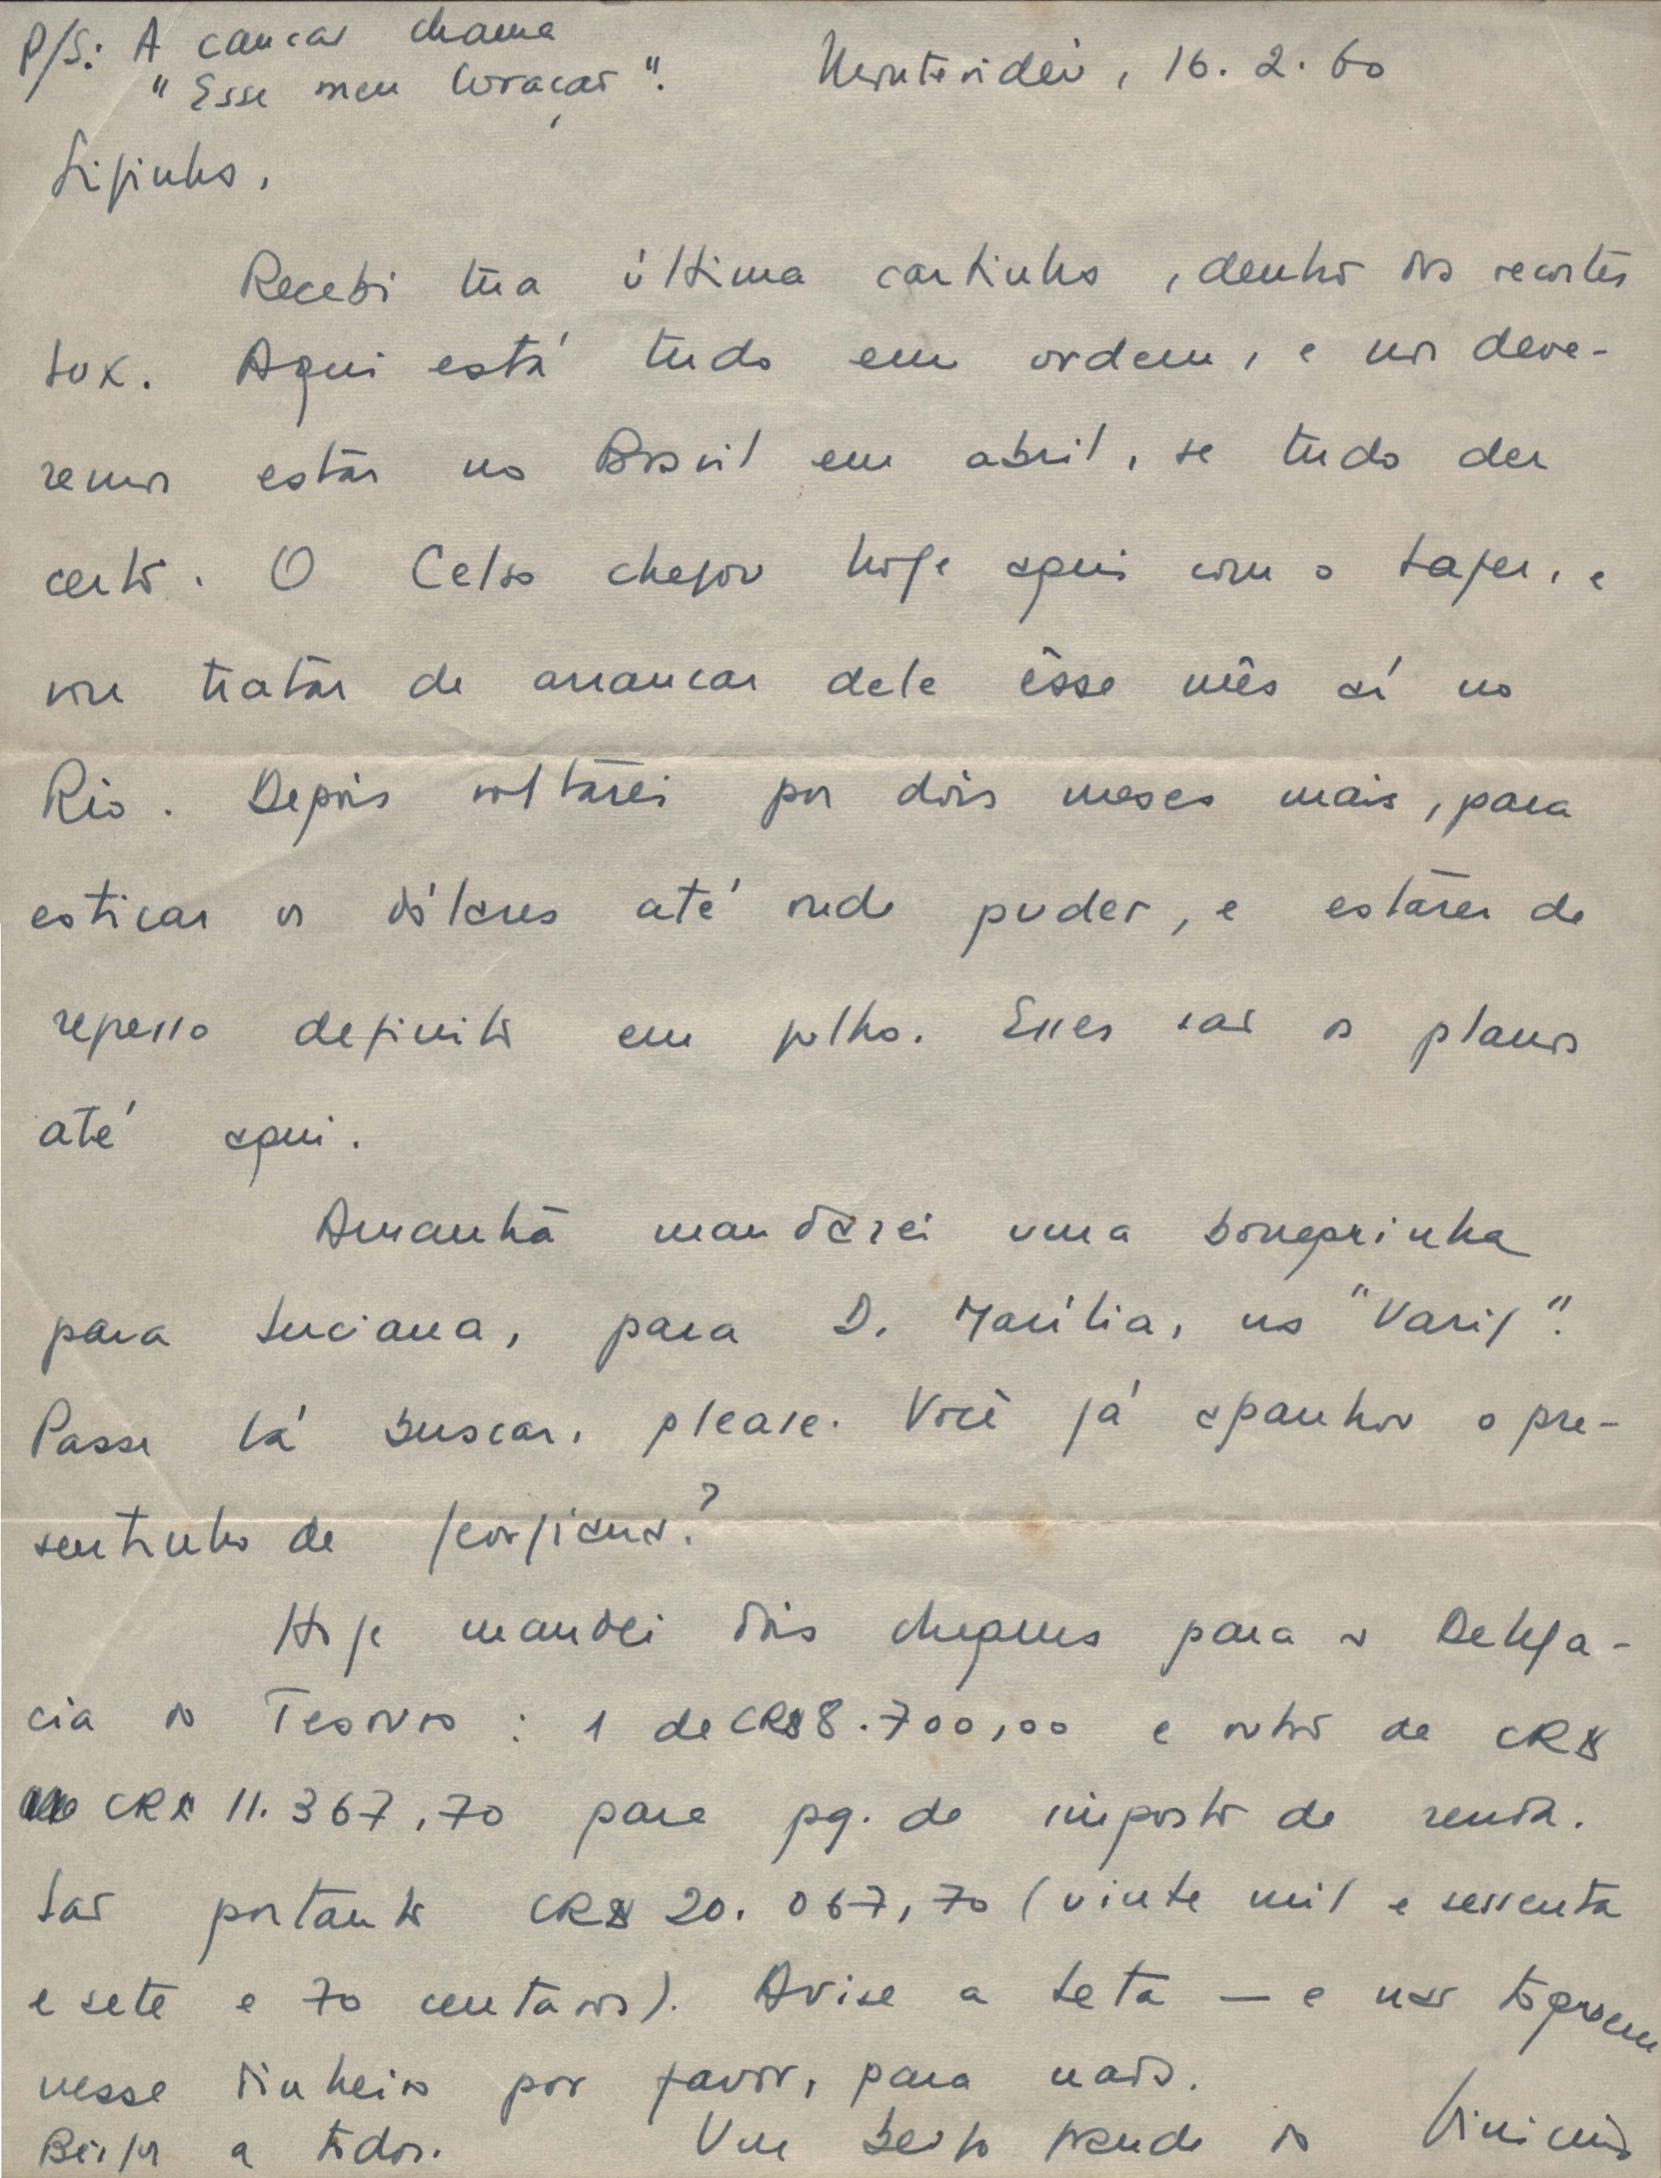 P/S: A canção chama
"Esse meu coração".
Montevidéu, 16.2.60
Giginha,
Recebi tua última cartinha, dentro dos recortes
Lux. Aqui está tudo em ordem, e nós deve-
remos estar no Brasil em abril, se tudo der
certo. O Celso chegou hoje aqui com o Lafer, e
vou tratar de arrancar dele êsse mês aí no
Rio. Depois voltarei por dois meses mais, para
esticar os dólares até onde puder, e estarei de
regresso definitivo em julho. Esses são os planos
até aqui.
Amanhã mandarei uma bonequinha
para Luciana, para D. Marília, na "Varig".
Passe lá buscar, please. Você já apanhou o pre-
sentinho de Georgiana?
Hoje mandei dois cheques para a Delega-
cia do Tesouro: 1 de CR$ 8.700,00 e outro de CR$
CR$ 11.367,70 para pg. de imposto de renda.
São portanto CR$ 20.067,70 (vinte mil e sessenta
e sete e 70 centavos). Avise a Leta — e não toquem
nesse dinheiro por favor, para nada.
Beijos a todos. Um beijo grande do Vinicius